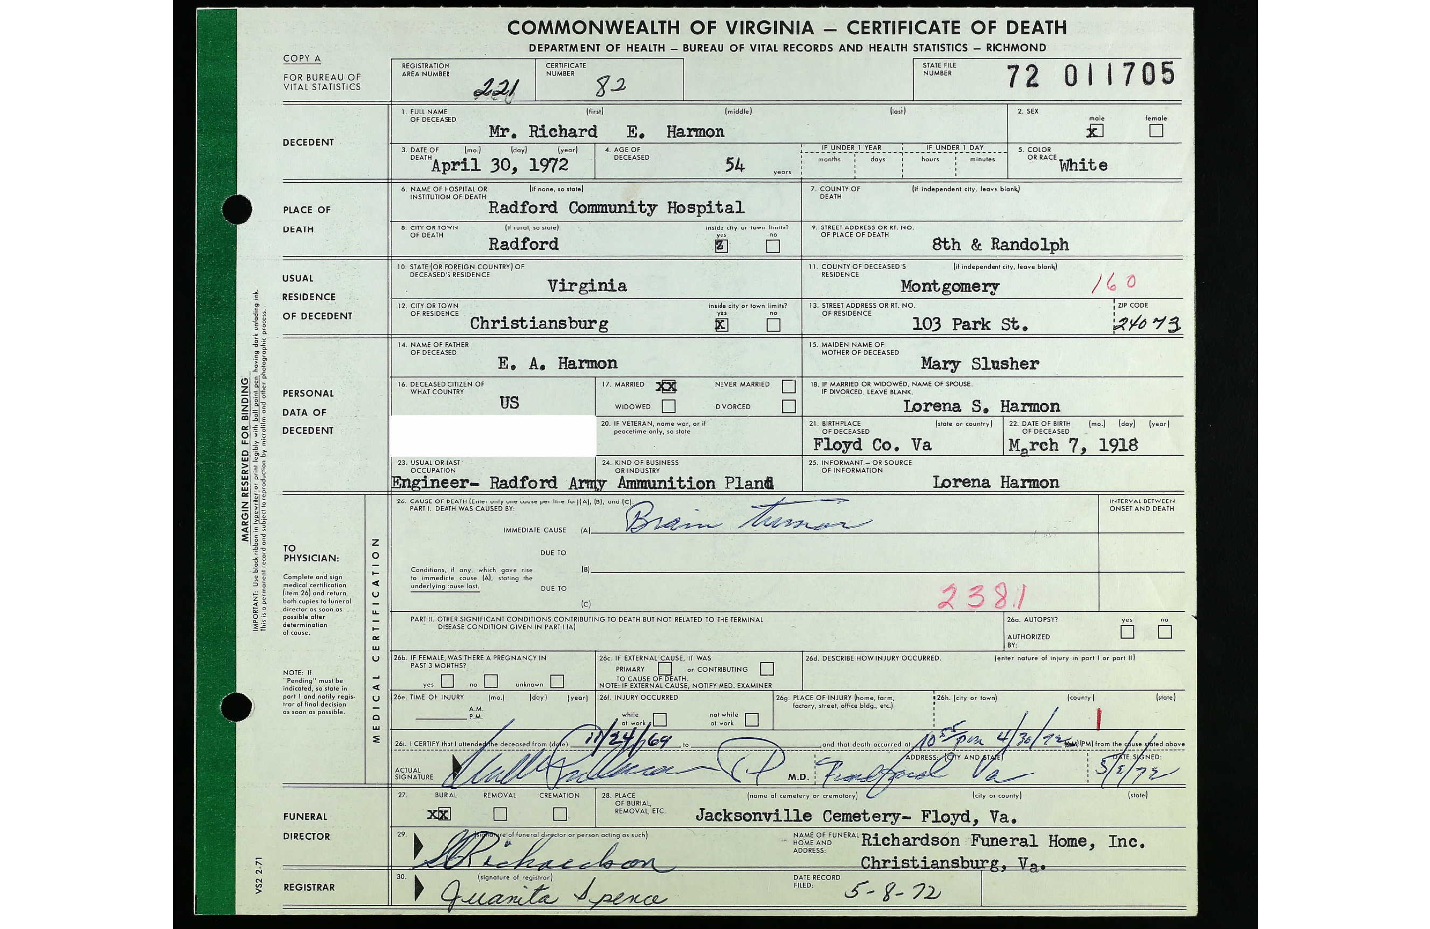 COMMONWEALTH OF VIRGINIA — CERTIFICATE OF DEATH
DEPARTMENT OF HEALTH — BUREAU OF VITAL RECORDS AND HEALTH STATISTICS — RICHMOND
COPY A
FOR BUREAU OF
VITAL STATISTICS
REGISTRATION
AREA NUMBER 221
CERTIFICATE
NUMBER 82
STATE FILE
NUMBER 72 011705
DECEDENT
1. FULL NAME (first) (middle) (last)
OF DECEASED
Mr. Richard E. Harmon
2. SEX
male female
x
3. DATE OF (mo.) (day) (year)
DEATH
April 30, 1972
4. AGE OF
DECEASED
54 years
IF UNDER 1 YEAR IF UNDER 1 DAY
months days hours minutes
5. COLOR
OR RACE White
PLACE OF
DEATH
6. NAME OF HOSPITAL OR (if none, so state)
INSTITUTION OF DEATH
Radford Community Hospital
7. COUNTY OF (if independent city, leave blank)
DEATH
8. CITY OR TOWN (if rural, so state) inside city or town limits?
OF DEATH yes no
Radford
9. STREET ADDRESS OR RT. NO.
OF PLACE OF DEATH
8th & Randolph
USUAL
RESIDENCE
OF DECEDENT
10. STATE (OR FOREIGN COUNTRY) OF
DECEASED'S RESIDENCE
Virginia
11. COUNTY OF DECEASED'S (if independent city, leave blank)
RESIDENCE
Montgomery 160
12. CITY OR TOWN inside city or town limits?
OF RESIDENCE yes no
Christiansburg x
13. STREET ADDRESS OR RT. NO.
OF RESIDENCE
103 Park St.
ZIP CODE
24073
PERSONAL
DATA OF
DECEDENT
14. NAME OF FATHER
OF DECEASED
E. A. Harmon
15. MAIDEN NAME OF
MOTHER OF DECEASED
Mary Slusher
16. DECEASED CITIZEN OF
WHAT COUNTRY
US
17. MARRIED xx NEVER MARRIED
WIDOWED DIVORCED
18. IF MARRIED OR WIDOWED, NAME OF SPOUSE.
IF DIVORCED, LEAVE BLANK.
Lorena S. Harmon
20. IF VETERAN, name war, or if
peacetime only, so state
21. BIRTHPLACE (state or country)
OF DECEASED
Floyd Co. Va
22. DATE OF BIRTH (mo.) (day) (year)
OF DECEASED
March 7, 1918
23. USUAL OR LAST
OCCUPATION
24. KIND OF BUSINESS
OR INDUSTRY
Engineer- Radford Army Ammunition Plant
25. INFORMANT — OR SOURCE
OF INFORMATION
Lorena Harmon
MARGIN RESERVED FOR BINDING
IMPORTANT: Use black ribbon in typewriter or print legibly with ball point pen having dark unfading ink.
This is a permanent record and subject to reproduction by microfilm and other photographic process.
TO
PHYSICIAN:
Complete and sign
medical certification
(item 26) and return
both copies to funeral
director as soon as
possible after
determination
of cause.
NOTE: If
"Pending" must be
indicated, so state in
part I and notify regis-
trar of final decision
as soon as possible.
MEDICAL CERTIFICATION
26. CAUSE OF DEATH (Enter only one cause per line for (A), (B), and (C)
PART I. DEATH WAS CAUSED BY:
INTERVAL BETWEEN
ONSET AND DEATH
IMMEDIATE CAUSE (A) Brain tumor
DUE TO
Conditions, if any, which gave rise
to immediate cause (A), stating the (B)
underlying cause last. DUE TO
(C)
2381
PART II. OTHER SIGNIFICANT CONDITIONS CONTRIBUTING TO DEATH BUT NOT RELATED TO THE TERMINAL
DISEASE CONDITION GIVEN IN PART I (A)
26a. AUTOPSY? yes no
AUTHORIZED
BY:
26b. IF FEMALE, WAS THERE A PREGNANCY IN
PAST 3 MONTHS?
yes no unknown
26c. IF EXTERNAL CAUSE, IT WAS
PRIMARY or CONTRIBUTING
TO CAUSE OF DEATH.
NOTE: IF EXTERNAL CAUSE, NOTIFY MED. EXAMINER
26d. DESCRIBE HOW INJURY OCCURRED. (enter nature of injury in part I or part II)
26e. TIME OF INJURY (mo.) (day) (year)
A.M.
P.M.
26f. INJURY OCCURRED
while at work not while at work
26g. PLACE OF INJURY (home, farm,
factory, street, office bldg., etc.)
26h. (city or town) (county) (state)
26i. I CERTIFY that I attended the deceased from (date) 11/24/69 to and that death occurred at 10 55 pm 4/30/72 (PM) from the cause stated above
ACTUAL
SIGNATURE
M.D.
ADDRESS: (CITY AND STATE)
Radford Va
DATE SIGNED:
FUNERAL
DIRECTOR
27. BURIAL REMOVAL CREMATION
xx
28. PLACE (name of cemetery or crematory) (city or county) (state)
OF BURIAL,
REMOVAL, ETC.
Jacksonville Cemetery- Floyd, Va.
29. (signature of funeral director or person acting as such)
Richardson
NAME OF FUNERAL
HOME AND
ADDRESS:
Richardson Funeral Home, Inc.
Christiansburg, Va.
REGISTRAR
30. (signature of registrar)
Juanita Spence
DATE RECORD
FILED: 5-8-72
VS2 2-71